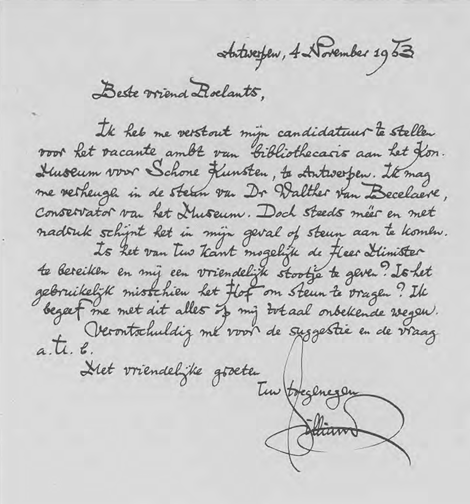 Antwerpen, 4 November 1953
Beste vriend Roelants,
Ik heb me verstout mijn candidatuur te stellen
voor het vacante ambt van bibliothecaris aan het Kon.
Museum voor Schone Kunsten, te Antwerpen. Ik mag
me verheugen in de steun van Dr Walther van Becelaere,
conservator van het Museum. Doch steeds méér en met
nadruk schijnt het in mijn geval op steun aan te komen.
Is het van Uw kant mogelijk de Heer Minister
te bereiken en mij een vriendelijk stootje te geven? Is het
gebruikelijk misschien het Hof om steun te vragen? Ik
begeef me met dit alles op mij totaal onbekende wegen.
Verontschuldig me voor de suggestie en de vraag
a.U.E.
Met vriendelijke groeten
Uw toegenegen